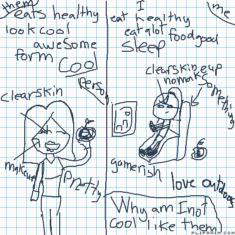 them
eats healthy
look cool
awesome
form
Cool
person
clearskin
makeup
pretty
I
me
eat healthy
eat alot food good
sleep
clearskin
no make up
gamerish
love outdoors
Why am I not
cool like them
FLIPANIM.COM